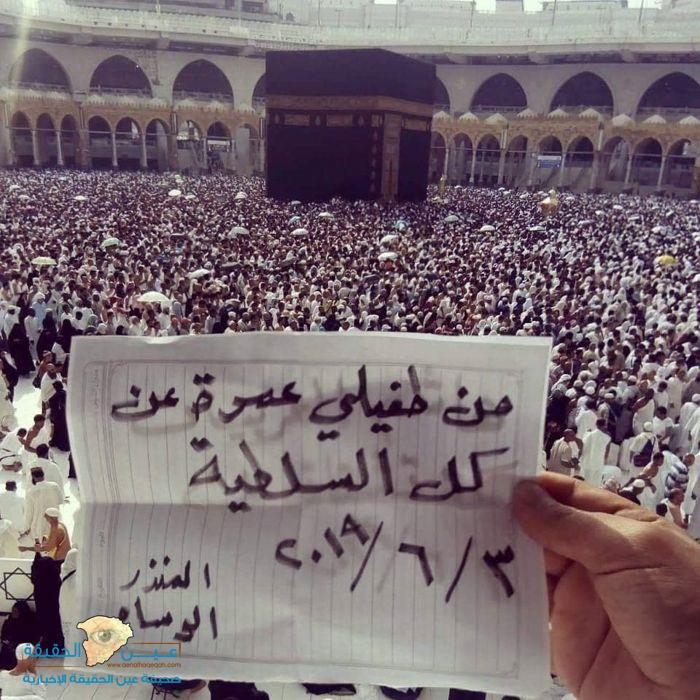 من طفيلي عمرة عن
كل السلطية
٢٠١٩/٦/٣
المنذر
الوساد
عين الحقيقة
www.aenalhaqeqah.com
صحيفة عين الحقيقة الإخبارية